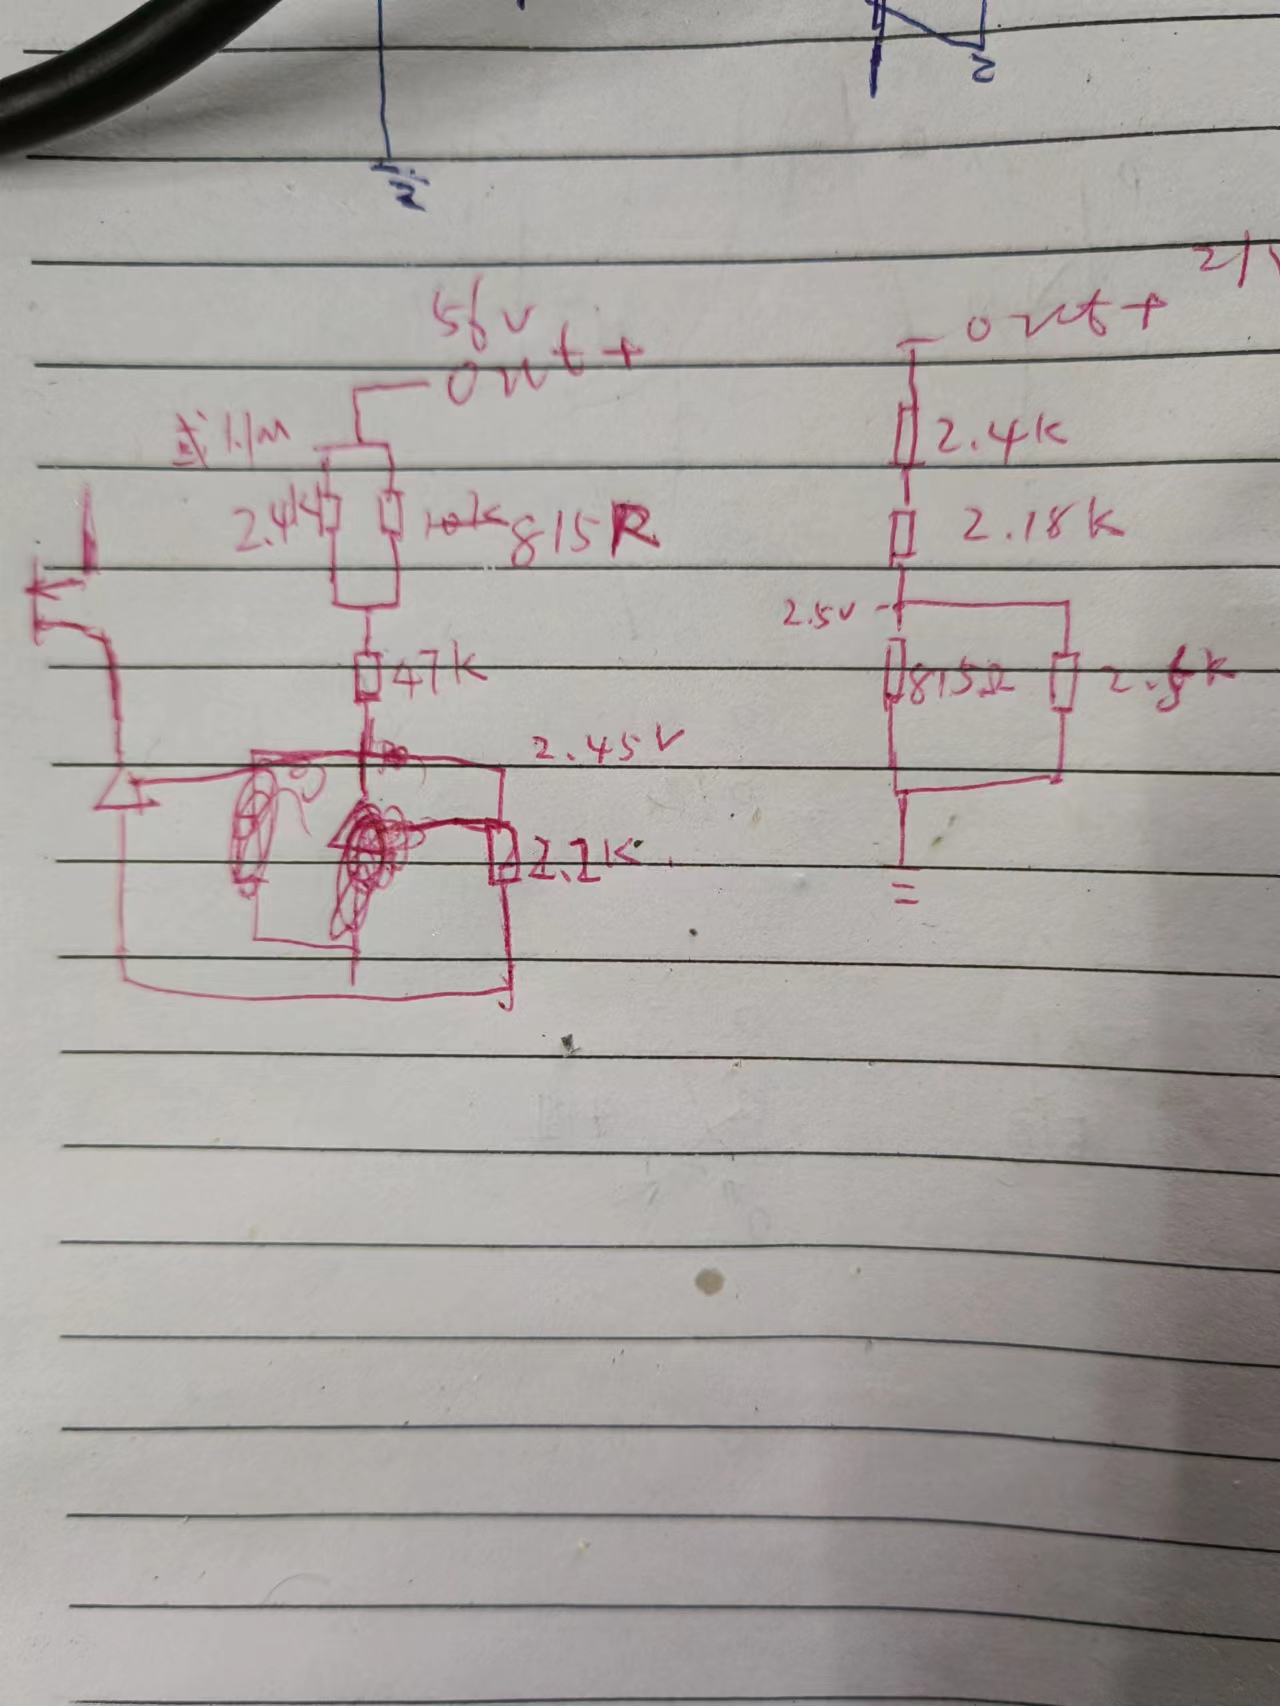 2
56V
out +
或 1.1M
2.4K
10K 815R
47K
2.45V
2.2K
21V
out +
2.4K
2.18K
2.5V
815Ω